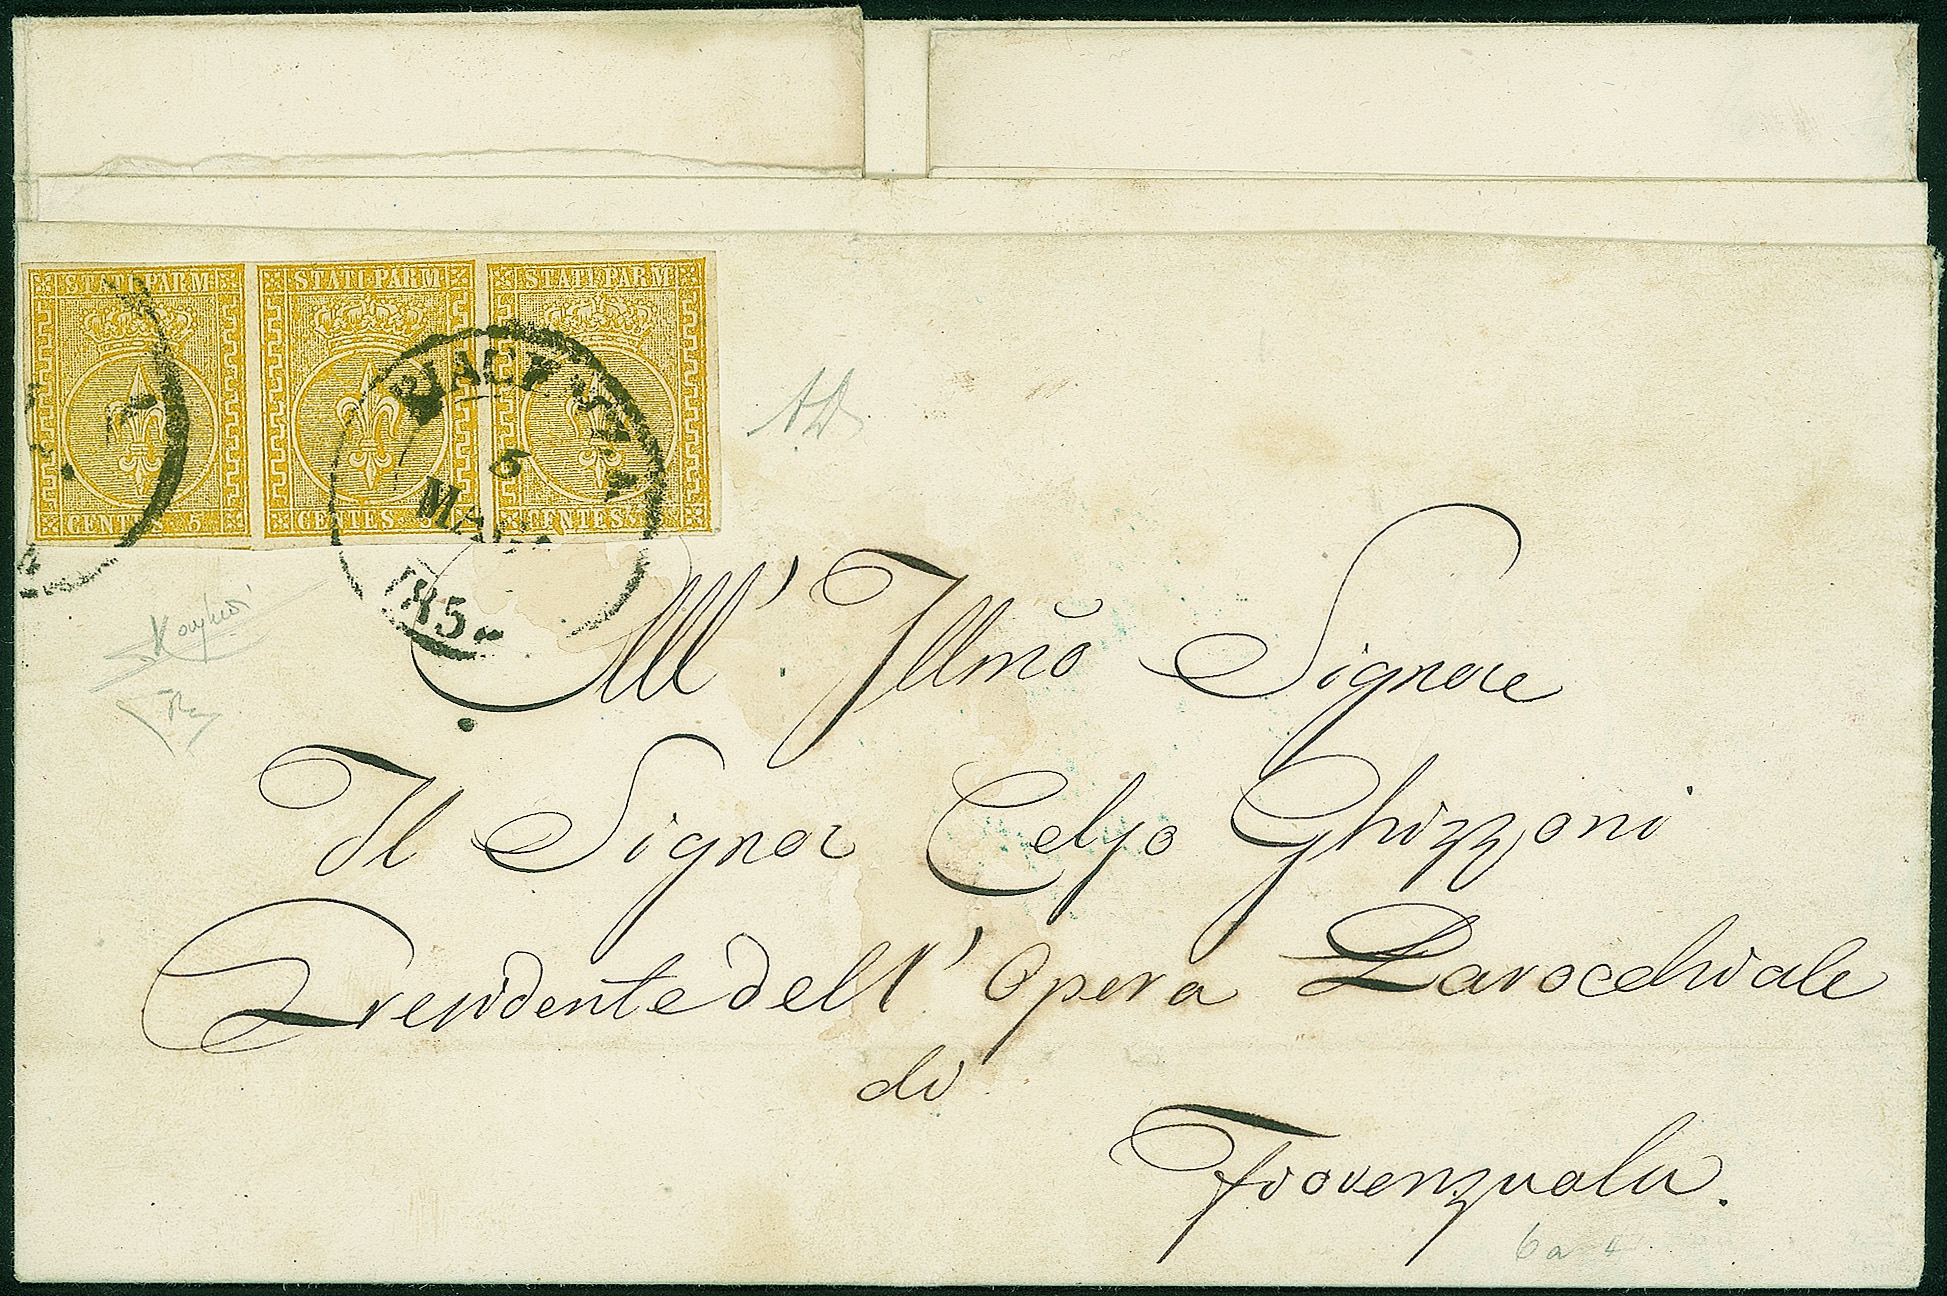 STATI PARM STATI PARM STATI PARM
CENTES. 5 CENTES. 5 CENTES.
PIACENZA
6
MAG
185
All' Illmo Signore
Il Signor Celso Ghizzoni
Presidente dell' Opera Parocchiale
di
Fiorenzuola.
6a